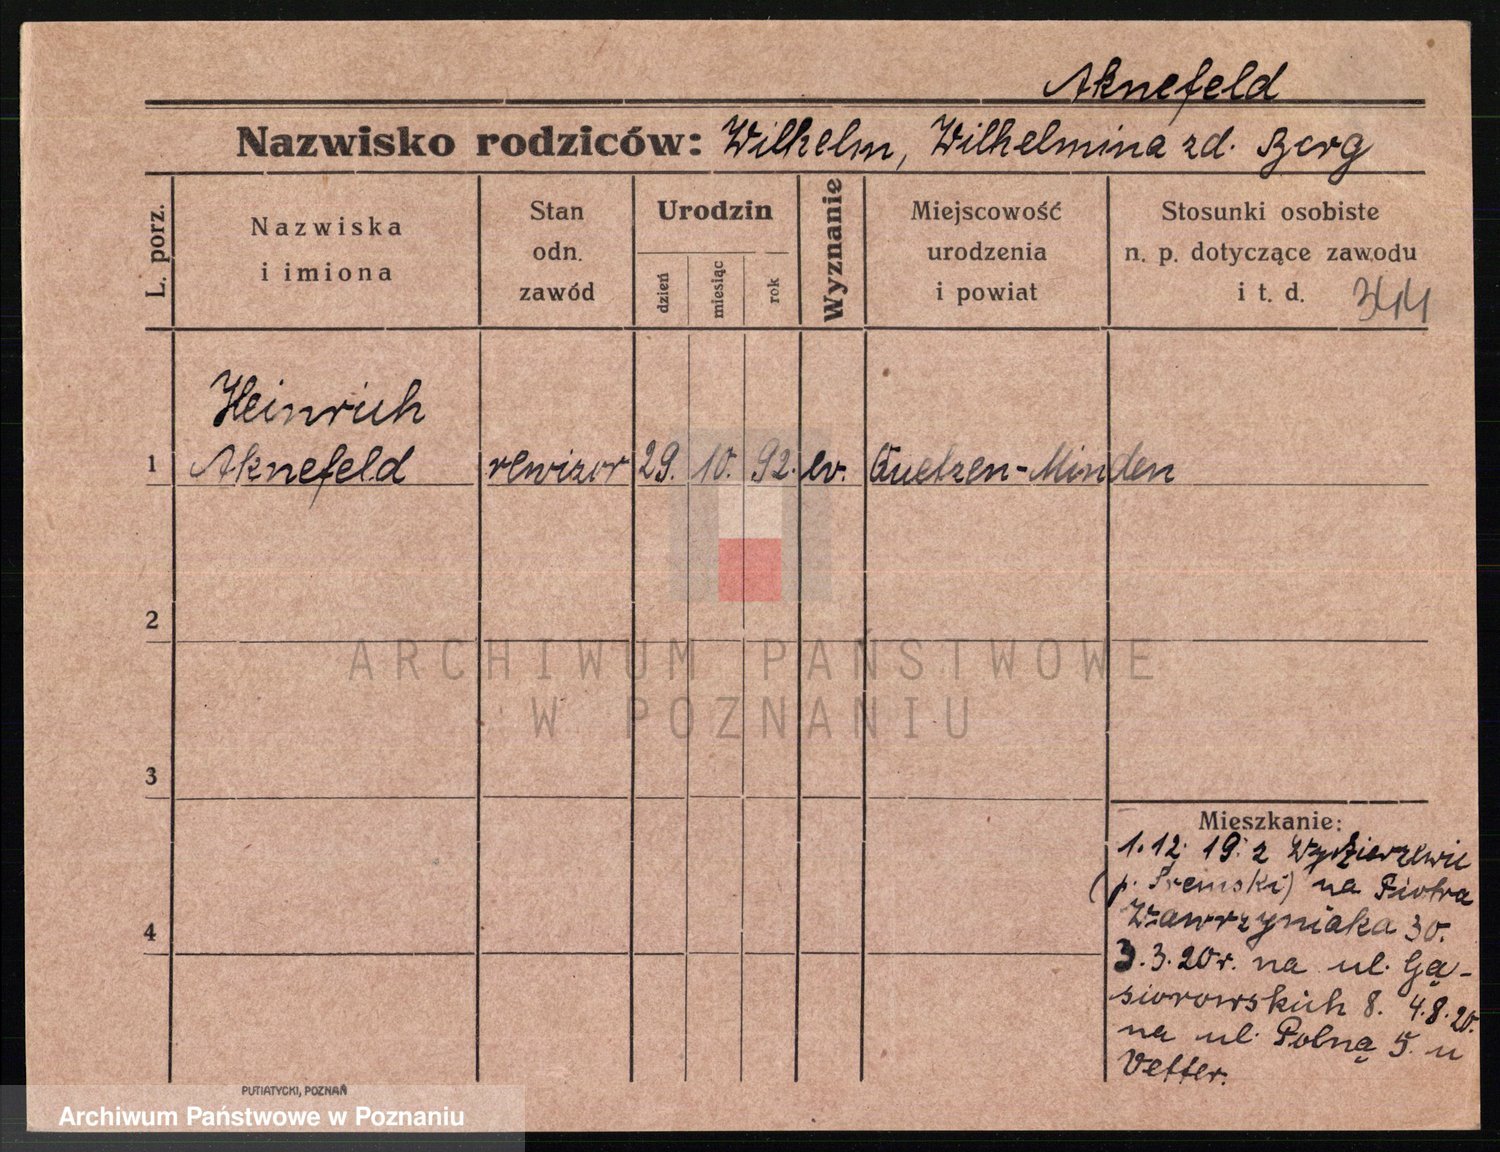 Aknefeld
Nazwisko rodziców: Wilhelm, Wilhelmina zd. Berg
L. porz.
Nazwiska
i imiona
Stan
odn.
zawód
Urodzin
dzień
miesiąc
rok
Wyznanie
Miejscowość
urodzenia
i powiat
Stosunki osobiste
n. p. dotyczące zawodu
i t. d. 344
Heinrich
1 Aknefeld rewizor 29. 10. 92. ev. Quetzen-Minden
2
ARCHIWUM PAŃSTWOWE
W POZNANIU
3
4
Mieszkanie:
1.12. 19. z
(p. Śremski) na Piotra
Wawrzyniaka 30.
3.3.20r. na ul. Gą-
siorowskich 8. 4.8.20.
na ul. Polną 5. u
Vetter.
PUTIATYCKI, POZNAŃ
Archiwum Państwowe w Poznaniu